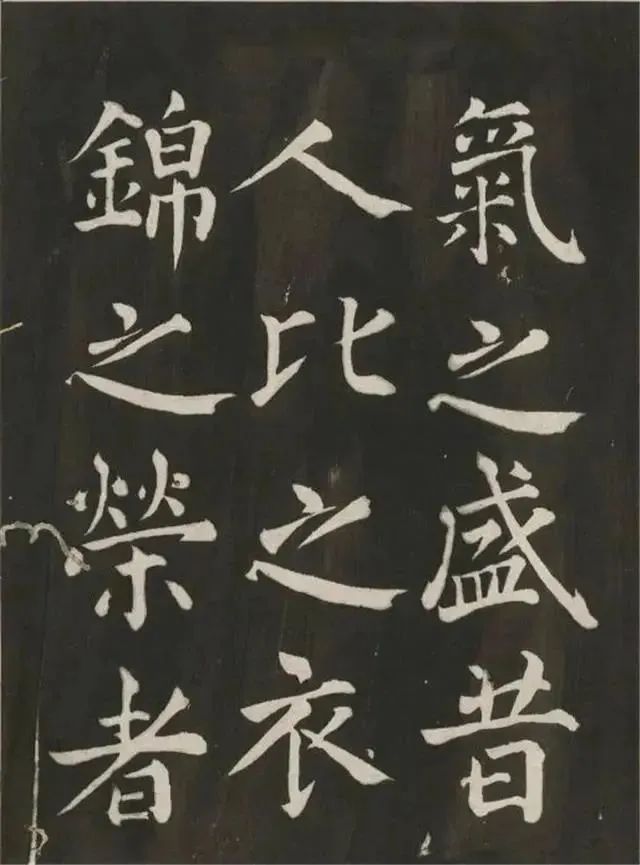 氣之盛昔
人比之衣
錦之榮者